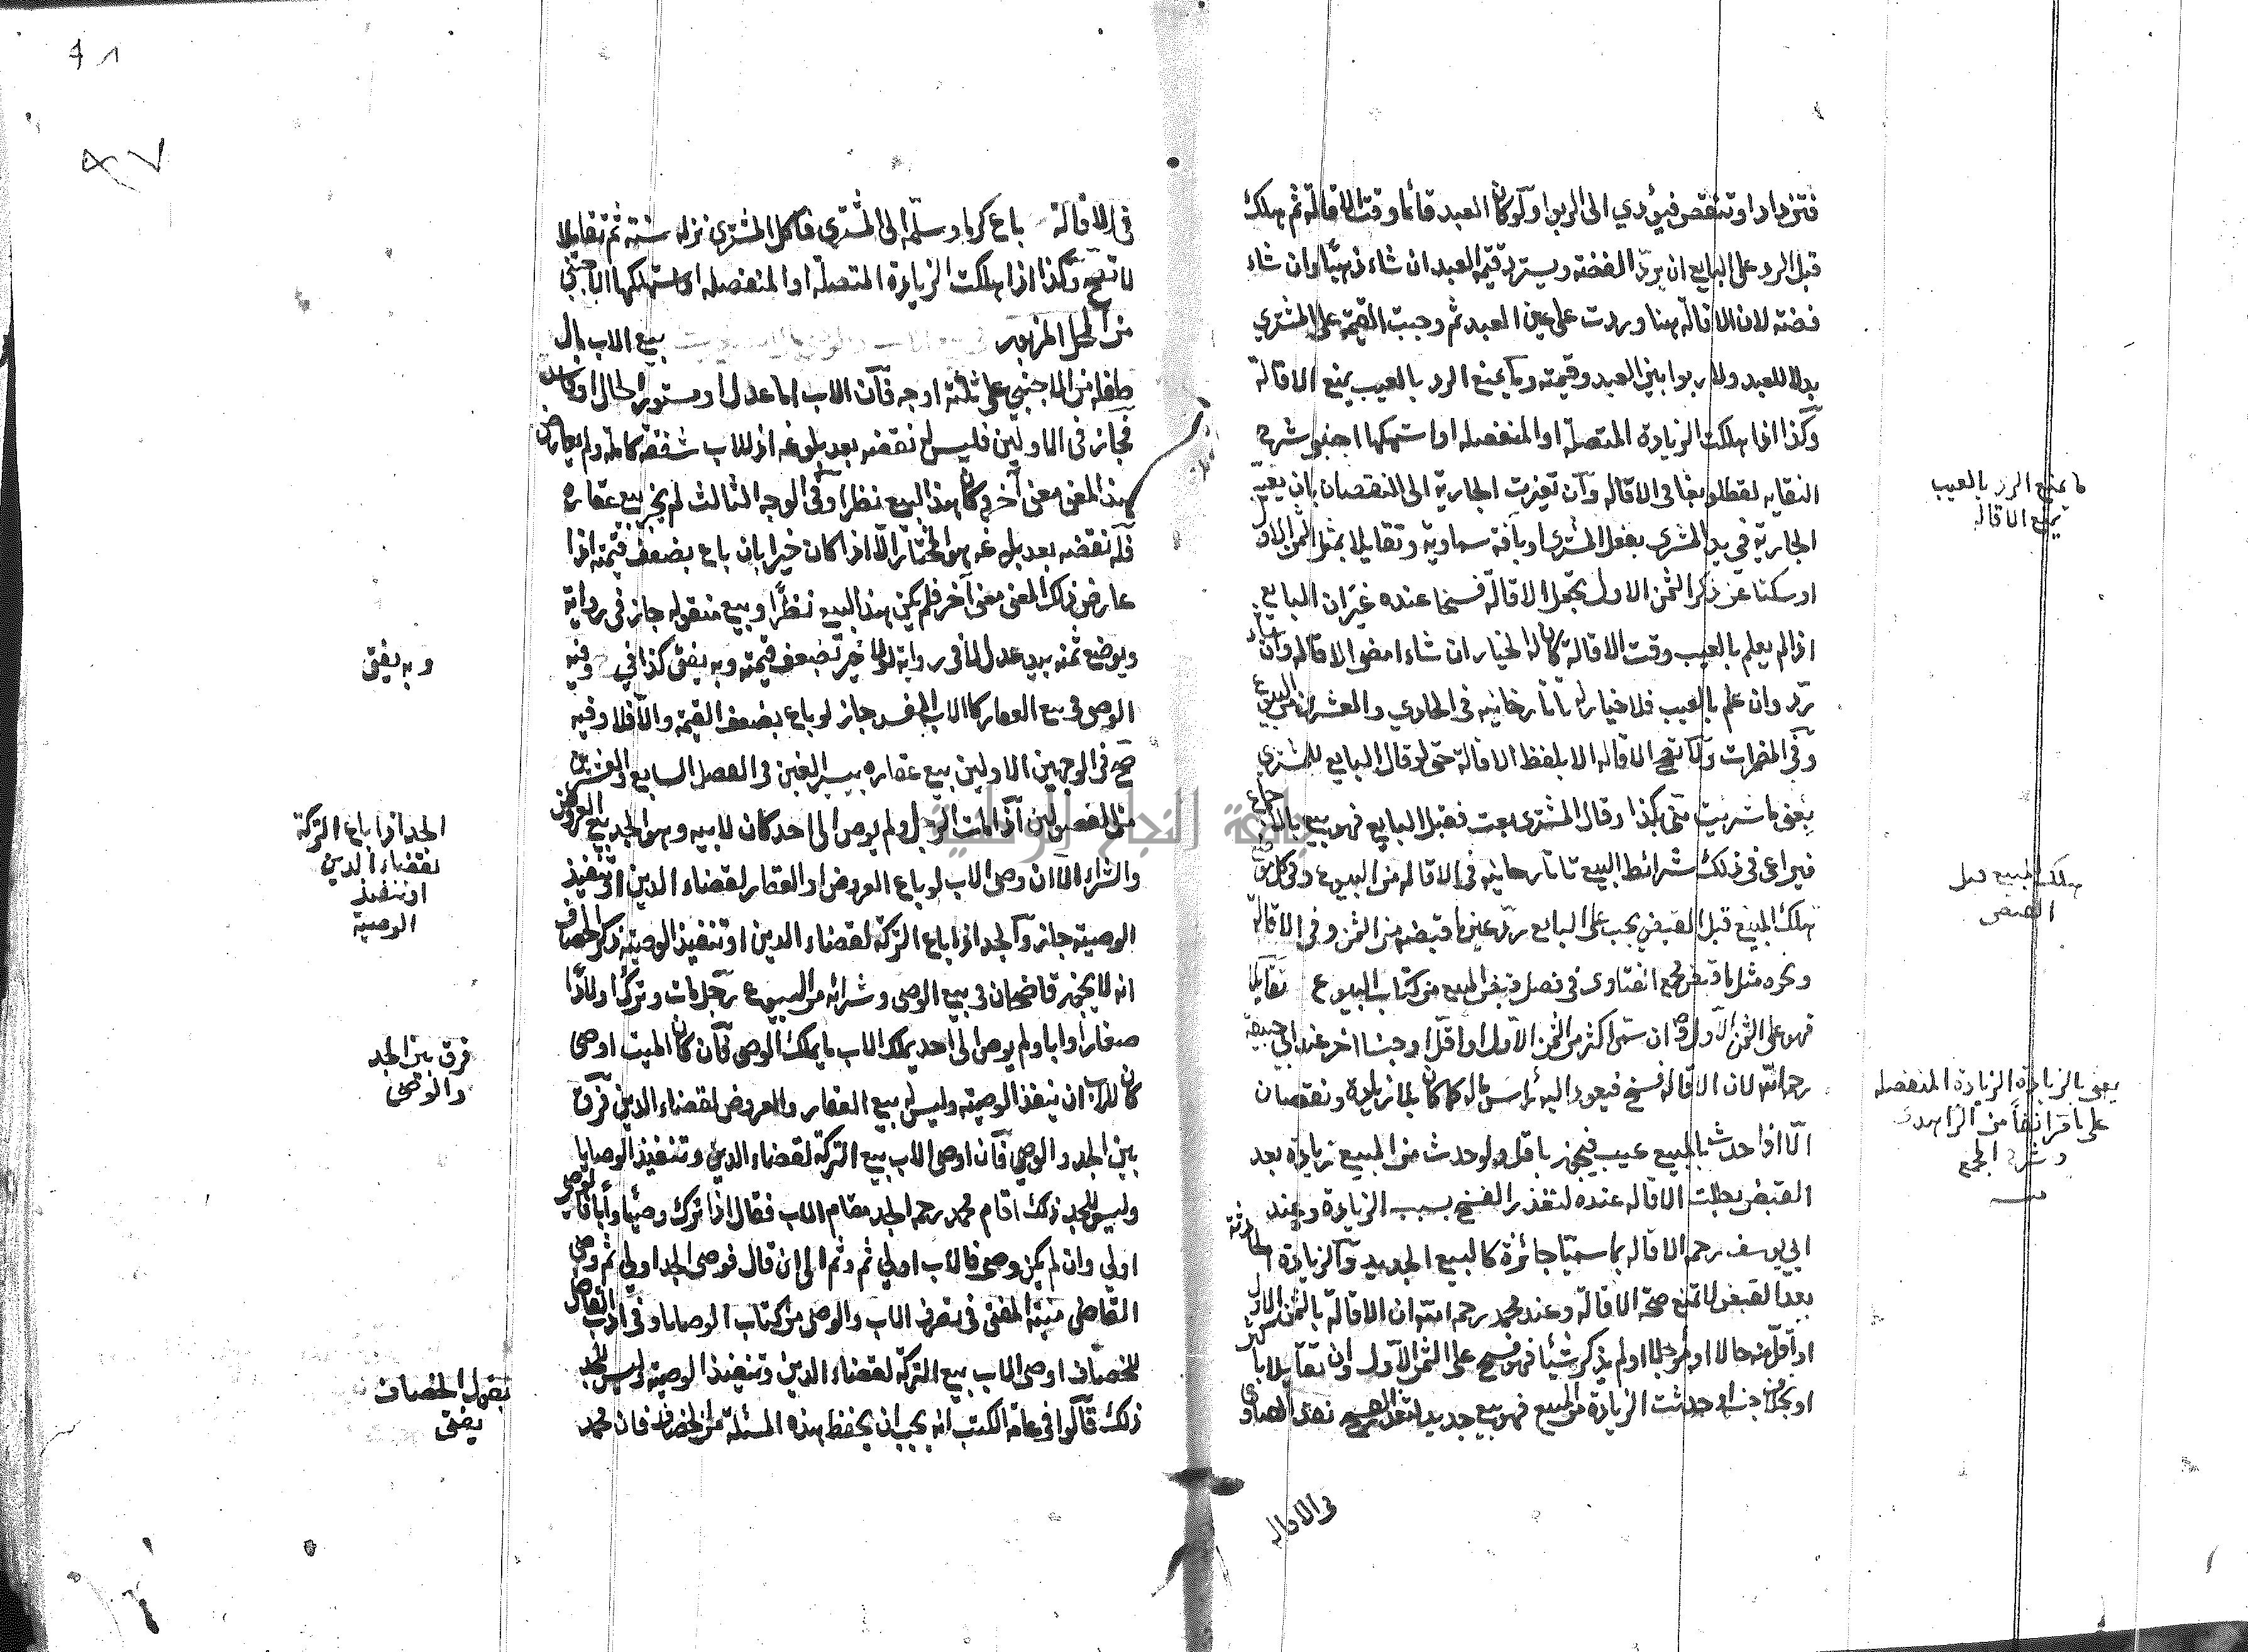 فتزداد او تنتقص فيؤدي الى الربوا ولو كان العبد قائما وقت الاقالة ثم هلك
قبل الرد على البايع ان يرد الفضة ويسترد قيمة العبد ان شاء ذهبا وان شاء
فضة لان الاقالة هنا وردت على عين العبد ثم وجبت القيمة على المشتري
بدلا للعبد ولا ربوا بين العبد وقيمته وما يمنع الرد بالعيب يمنع الاقالة
وكذا اذا هلكت الزيادة المتصلة او المنفصلة او استهلكها اجنبي شرح
النقايه لقطلوبغا في الاقالة وان تغيرت الجارية الى النقصان بان تعيب
الجارية في يد المشتري بفعل المشتري او بآفة سماوية وتقايلا بمثل الثمن الاول
او سكتا عن ذكر الثمن الاول تجعل الاقالة فسخا عنده غير ان البايع
اذا لم يعلم بالعيب وقت الاقالة كان له الخيار ان شاء امضى الاقالة وان شاء
رد وان علم بالعيب فلا خيار له تاتارخانيه في الحادي والعشرين من البيوع
وفي المضمرات ولا تصح الاقالة الا بلفظ الاقالة حتى لو قال البايع للمشتري
بعني ما شريت مني بكذا وقال المشتري بعت فقبل البايع فهو بيع بالاجماع
فيراعى في ذلك شرائط البيع تاتارخانيه في الاقالة من البيوع وفي كل موضع
هلك المبيع قبل القبض يجب على البايع رد عين ما قبضه من الثمن وفي الاقالة
ونحوه مثل ما قبض مجمع الفتاوى في فصل قبض المبيع من كتاب البيوع تقايلا
فهو على الثمن الاول وان سمى اكثر من الثمن الاول او اقل او جنسا اخر عند ابي حنيفة
رحمه الله لان الاقالة فسخ فيعود اليه رأس ماله كما كان بلا زيادة ونقصان
الا اذا حدث بالمبيع عيب فيجوز باقل ولو حدث من المبيع زيادة بعد
القبض بطلت الاقالة عنده لتعذر الفسخ بسبب الزيادة وعند
ابي يوسف رحمه الاقالة بما سميا جائزة كالبيع الجديد والزيادة الحادثة
بعد القبض لا تمنع صحة الاقالة وعند محمد رحمه الله ان الاقالة بالثمن الاول
او اقل منه حالا او مؤجلا او لم يذكر شيئا فهو فسخ على الثمن الاول وان تقايلا باكثر
او بخلاف جنسه او حدثت الزيادة من المبيع فهو بيع جديد لتعذر الفسخ نقد الفتاوى
في الاقالة
ما يمنع الرد بالعيب
يمنع الاقالة
هلك المبيع قبل
القبض
يعني بالزيادة الزيادة المنفصلة
على ما مر انفا من الزاهدي
وشرح المجمع
منه
في الاقالة باع كرما وسلمه الى المشتري فاكل المشتري نزله سنة ثم تقايلا
لا تصح وكذا اذا هلكت الزيادة المتصلة او المنفصلة او استهلكها الاجنبي
من المحل المزبور بيع الاب مال
طفله من الاجنبي على ثلثة اوجه فان الاب اما عدل او مستور الحال او فاسد
فجاز في الاولين فليس له نقضه بعد بلوغه اذ للاب شفقة كاملة ولم يعارض
هذا المعنى معنى آخر وكان هذا البيع نظرا وفي الوجه الثالث لم يجز بيع عقاره
فله نقضه بعد بلوغه هو المختار الا اذا كان خيرا بان باع بضعف قيمته اذا
عارض ذلك المعنى معنى آخر فلم يكن هذا البيع نظرا وبيع منقوله جاز في رواية
ويوضع ثمنه بيد عدل لا في رواية الا لو خيرا بضعف قيمته وبه يفتى كذا في وفيه
الوصي في بيع العقار كالاب المفسد جاز لو باع بضعف القيمة والا فلا وفيه
صح في الوجهين الاولين بيع عقاره بيسير الغبن في الفصل السابع والعشرين
من الفصولين اذا مات الرجل ولم يوص الى احد كان لابيه وهو الجد بيع العروض
والشراء الا ان وصي الاب لو باع العروض او العقار لقضاء الدين او تنفيذ
الوصية جاز والجد اذا باع التركة لقضاء الدين او تنفيذ الوصية ذكر الخصاف
انه لا يجوز قاضيخان في بيع الوصي وشرائه من البيوع رجل مات وترك اولادا
صغارا وابا ولم يوص الى احد يملك الاب ما يملك الوصي فان كان الميت اوصى
كان للاب ان ينفذ الوصية وليس له بيع العقار والعروض لقضاء الدين فرق
بين الجد والوصي فان اوصى الاب بيع التركة لقضاء الدين وتنفيذ الوصايا
وليس للجد ذلك اقام محمد رحمه الجد مقام الاب فقال اذا ترك وصيا وابا فالوصي
اولى وان لم يكن وصي فالاب اولى ثم وثم الى ان قال فوصي الجد اولى ثم وصي
القاضي منية المفتي في تصرف الاب والوصي من كتاب الوصايا وفي ادب القاضي
للخصاف اوصى الاب بيع التركة لقضاء الدين وتنفيذ الوصية وليس للجد
ذلك قالوا في عامة الكتب انه يجب ان يحفظ هذه المسئلة من الخصاف فان محمد
وبه يفتى
الجد اذا باع التركة
لقضاء الدين
او تنفيذ
الوصية
فرق بين الجد
والوصي
بقول الخصاف
يفتى
جامعة النجاح الوطنية